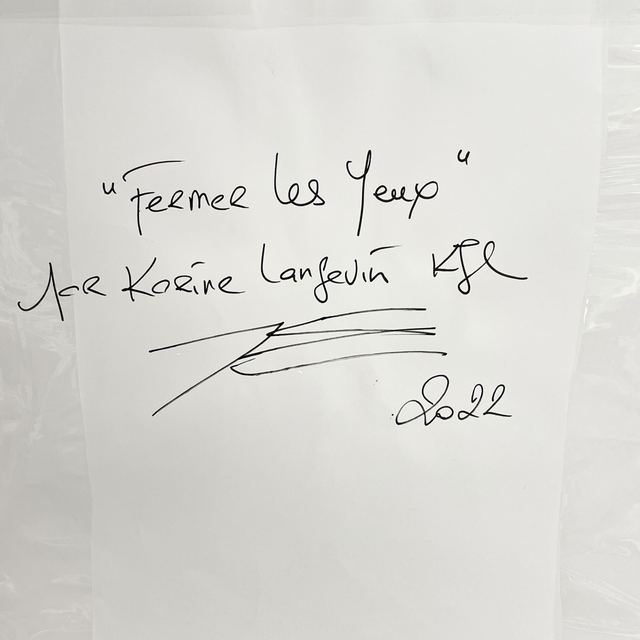 "Fermer les Yeux"
par Korine Langevin KJL
2022